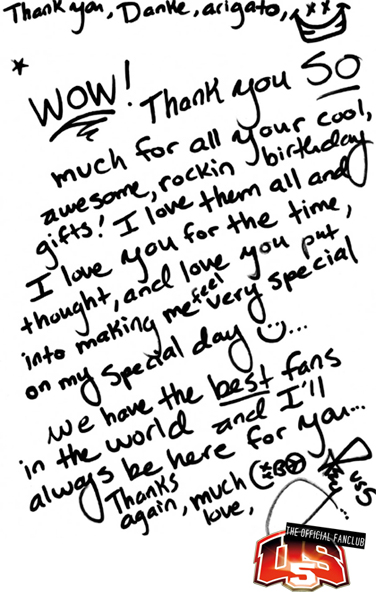 Thank you, Danke, arigato,
WOW! Thank you SO
much for all your cool,
awesome, rockin birthday
gifts! I love them all and
I love you for the time,
thought, and love you put
into making me feel very special
on my special day ...
we have the best fans
in the world and I'll
always be here for you...
Thanks
again, much
love,
US5
THE OFFICIAL FANCLUB
US5